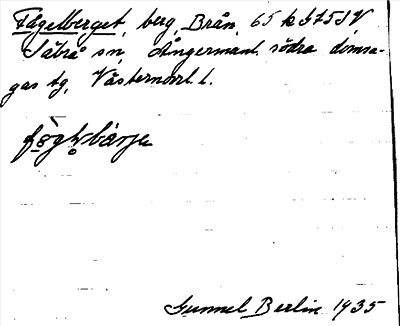 Fågelberget, berg, Brån, 65 k S75SV
Säbrå sn, Ångermanl. södra domsa-
gas tg, Västernorrl. l.
Gunnel Berlin 1935